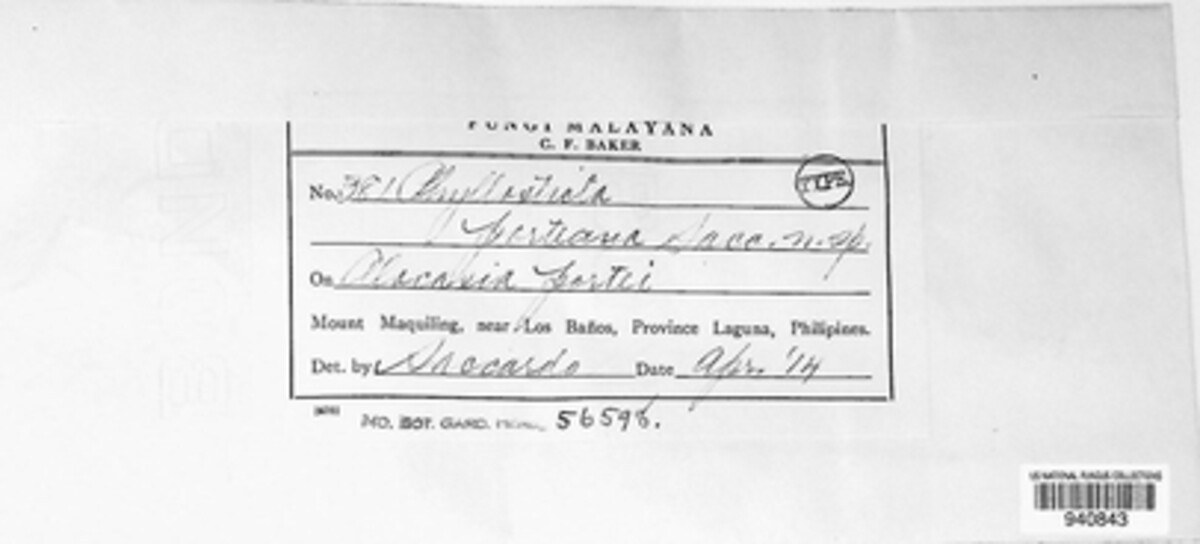 FUNGI MALAYANA
C. F. BAKER
No. 381 Phyllosticta
TYPE
Sacc. n. sp.
On Alocasia
Mount Maquiling, near Los Baños, Province Laguna, Philipines.
Det. by Saccardo Date Apr. '14
MO. BOT. GARD. 56598.
US NATIONAL FUNGUS COLLECTIONS
940843